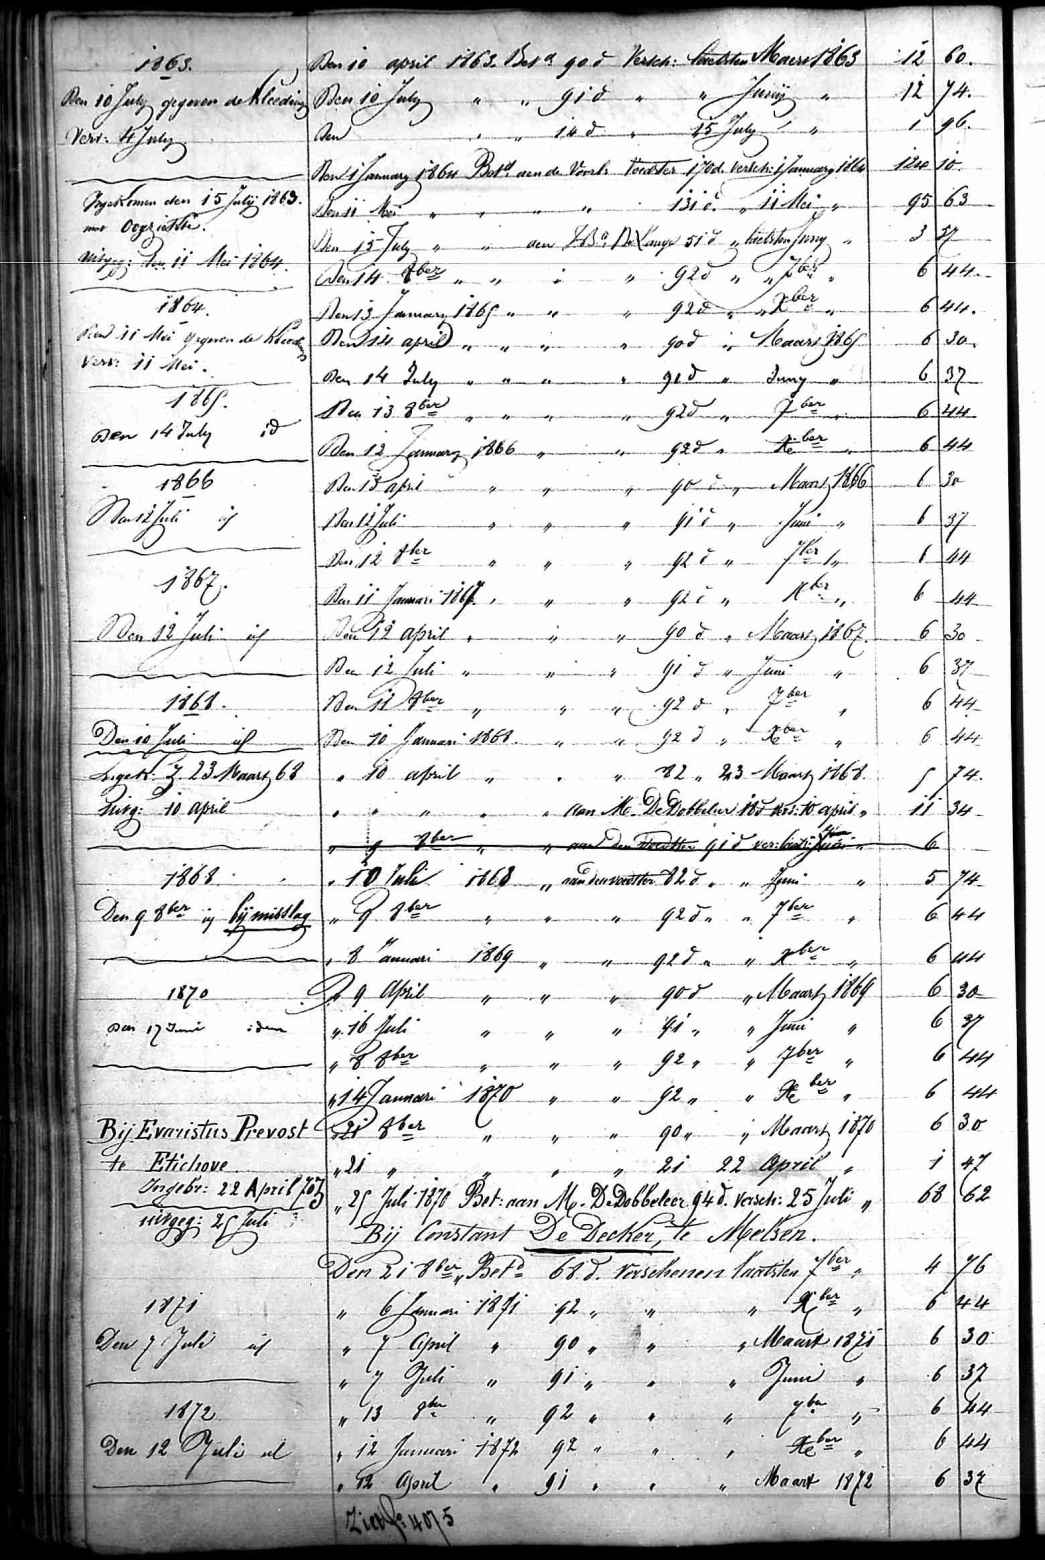 1863.
Den 10 July gegeven de kleeding
Verv: 4 July
Ingekomen den 15 Julij 1863.
met Oogziekte.
uitgeg: den 11 Mei 1864.
1864.
Den 11 Mei gegeven de kleed
Verv: 11 Mei.
1865.
Den 14 July id
1866
Den 12 Juli id
1867.
Den 12 Juli id
1868.
Den 10 Juli id
Ingek: 23 Maart 68
uitg: 10 april
1868
Den 9 8ber id bij misslag
1870
Den 17 Juni idem
Bij Evaristus Prevost
te Etichove
Ingebr: 22 April 70
uitgeg: 25 Juli
1871
Den 7 Juli id
1872
Den 12 Juli id
Den 10 april 1863 Betd 90 d Versch: laetsten Maert 1863 12 60.
Den 10 July " " 91 d " " Junij " 12 74.
Den " " 14 d " 15 July " 1 96.
Den 1 January 1864 Betd aen de Voorb: Voedster 170 d. Versch: 1 January 1864 124 10.
Den 11 Mei " " " " 131 d. " 11 Mei " 95 63
Den 15 July " " aen De Lange 51 d " laetsten Juny " 3 57
Den 14 8ber " " " " 92 d " " 7ber " 6 44
Den 13 January 1865 " " " 92 d " " Xber " 6 44.
Den 14 april " " " " 90 d " Maart 1865 6 30.
Den 14 July " " " " 91 d " Juny " 6 37
Den 13 8ber " " " " 92 d " 7ber " 6 44
Den 12 January 1866 " " 92 d " Xber " 6 44
Den 13 april " " " 90 d " Maart 1866 6 30
Den 12 Juli " " " 91 d " Juni " 6 37
Den 12 8ber " " " 92 d " 7ber " 6 44
Den 11 Januari 1867 " " " 92 d " Xber " 6 44
Den 12 april " " " 90 d " Maart 1867. 6 30
Den 12 Juli " " " 91 d " Juni " 6 37
Den 11 8ber " " " 92 d " 7ber " 6 44
Den 10 Januari 1868. " " 92 d " Xber " 6 44
" 10 april " " " 82 " 23 Maart 1868 5 74.
" " " " " aan M. De Dobbeleer 18 d vers: 10 april " 11 34
" 9 8ber " " aan den Voedster 91 d ver: laats: Juni " 6
" 10 Juli 1868 " aan den voedster 82 d " " Juni " 5 74
" 9 8ber " " " 92 d " " 7ber " 6 44
" 8 Januari 1869 " " 92 d " " Xber " 6 44
" 9 April " " " 90 d " Maart 1869 6 30
" 16 Juli " " " 91 " " Juni " 6 37
" 8 8ber " " " 92 " " 7ber " 6 44
" 14 Januari 1870 " " 92 " " Xber " 6 44
" 21 8ber " " " 90 " " Maart 1870 6 30
" 21 " " " " 21 22 April " 1 47
" 25 Juli 1870 Bet: aan M. De Dobbeleer 94 d. versch: 25 Juli " 68 62
Bij Constant De Decker, te Melsen.
Den 21 8ber " Betd 68 d. Verschenen laatsten 7ber " 4 76
" 6 Januari 1871 92 " " " Xber " 6 44
" 7 April " 90 " " " Maart 1871 6 30
" 7 Juli " 91 " " " Juni " 6 37
" 13 8ber " 92 " " " 7ber " 6 44
" 12 Januari 1872 92 " " " Xber " 6 44
" 12 April " 91 " " " Maart 1872 6 37
Zie fo: 4075